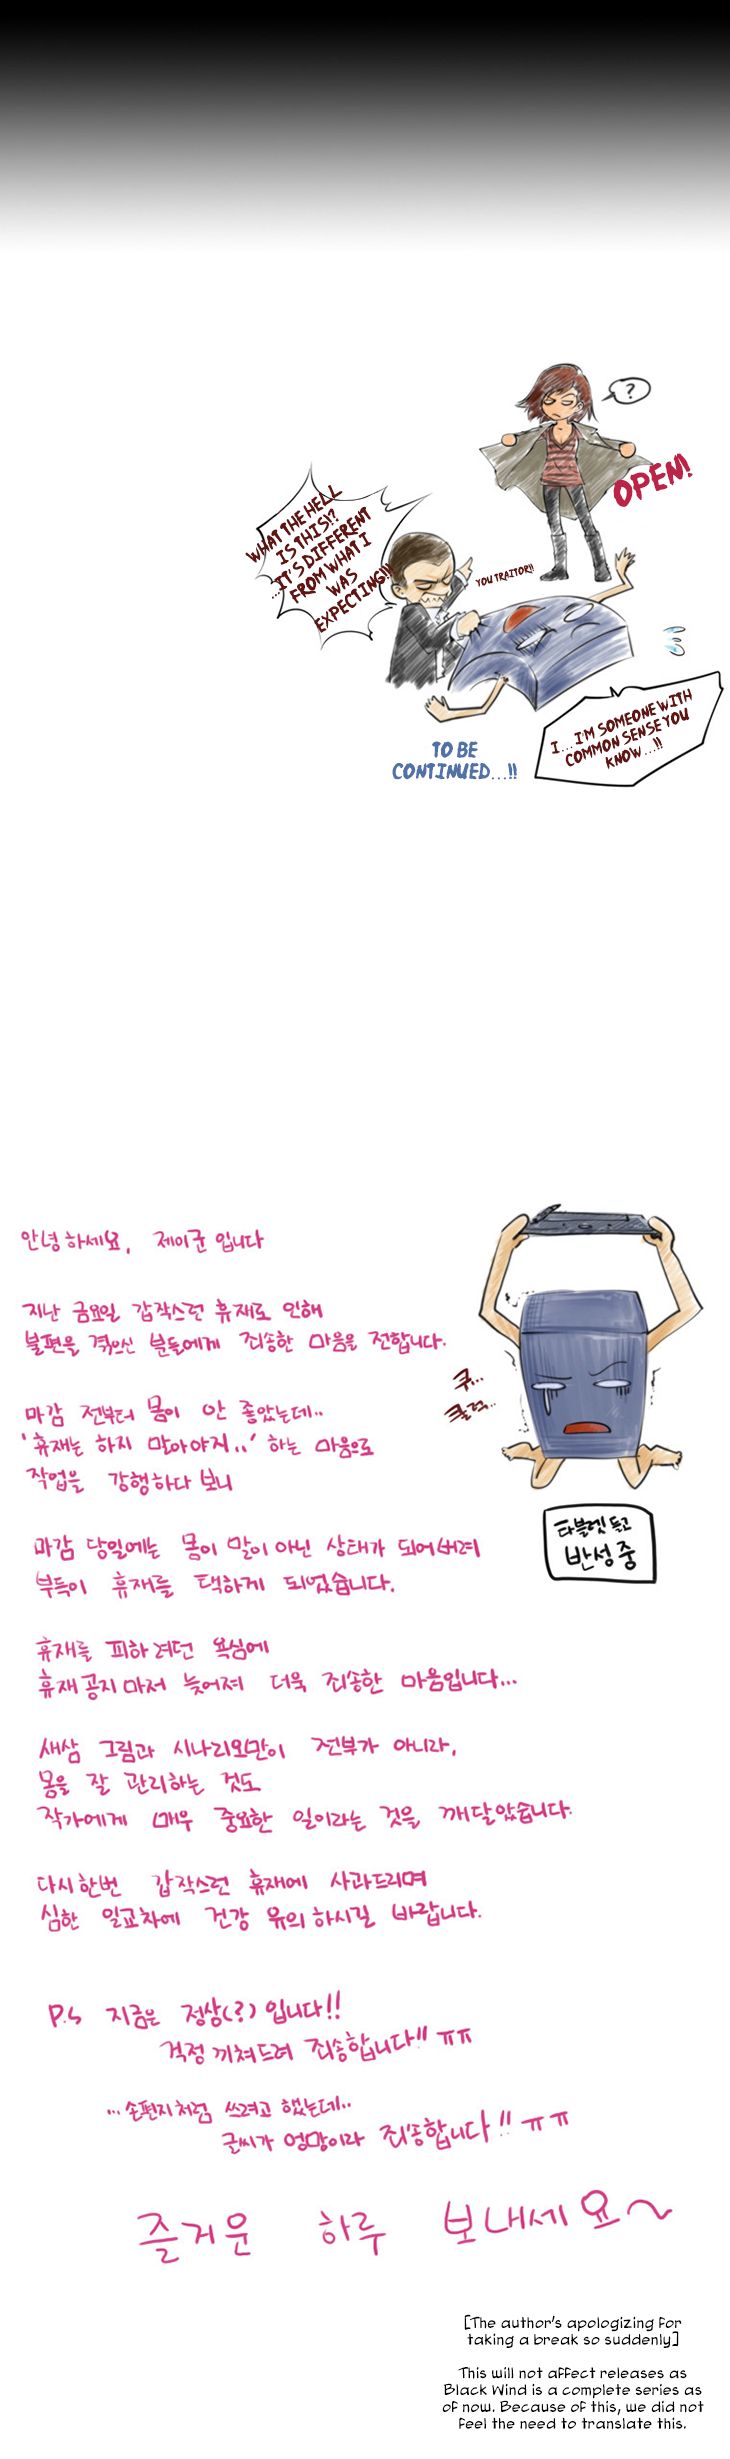 ?
OPEN!
WHAT THE HELL
IS THIS!?
...IT'S DIFFERENT
FROM WHAT I
WAS
EXPECTING!!!
YOU TRAITOR!!
I...I'M SOMEONE WITH
COMMON SENSE YOU
KNOW...!!
TO BE
CONTINUED...!!
안녕하세요, 제이군 입니다
지난 금요일 갑작스런 휴재로 인해
불편을 겪으신 분들에게 죄송한 마음을 전합니다.
쿠...
쿨럭...
마감 전부터 몸이 안 좋았는데..
'휴재는 하지 말아야지..' 하는 마음으로
작업을 강행하다 보니
타블렛 들고
반성중
마감 당일에는 몸이 말이 아닌 상태가 되어버려
부득이 휴재를 택하게 되었습니다.
휴재를 피하려던 욕심에
휴재공지마저 늦어져 더욱 죄송한 마음입니다...
새삼 그림과 시나리오만이 전부가 아니라,
몸을 잘 관리하는 것도
작가에게 매우 중요한 일이라는 것을 깨달았습니다.
다시한번 갑작스런 휴재에 사과드리며
심한 일교차에 건강 유의하시길 바랍니다.
P.S 지금은 정상(?)입니다!!
걱정 끼쳐드려 죄송합니다!! ㅠㅠ
...손편지처럼 쓰려고 했는데..
글씨가 엉망이라 죄송합니다!! ㅠㅠ
즐거운 하루 보내세요~
[The author's apologizing for
taking a break so suddenly]
This will not affect releases as
Black Wind is a complete series as
of now. Because of this, we did not
feel the need to translate this.